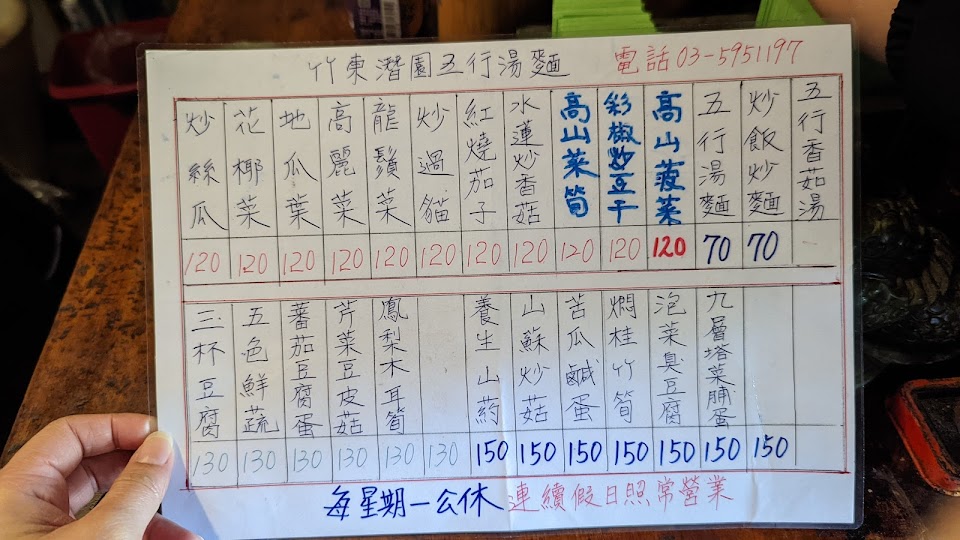 竹東潛園五行湯麵 電話 03-5951197
五行香茹湯
炒飯炒麵 70
五行湯麵 70
高山菠菜 120
彩椒炒豆干 120
高山菜筍 120
水蓮炒香菇 120
紅燒茄子 120
炒過貓 120
龍鬚菜 120
高麗菜 120
地瓜葉 120
花椰菜 120
炒絲瓜 120
150
九層塔菜脯蛋 150
泡菜臭豆腐 150
燜桂竹筍 150
苦瓜鹹蛋 150
山蘇炒菇 150
養生山葯 150
130
鳳梨木耳筍 130
芹菜豆皮菇 130
蕃茄豆腐蛋 130
五色鮮蔬 130
三杯豆腐 130
每星期一公休 連續假日照常營業